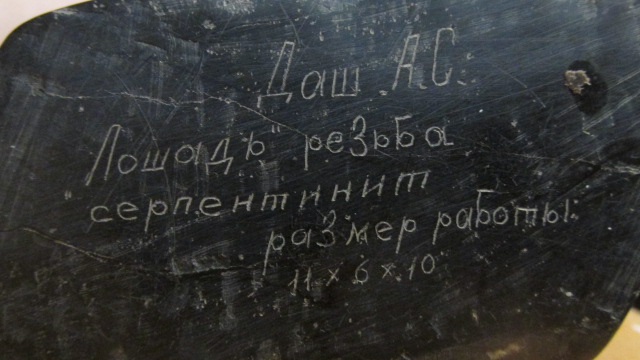 Даш. А.С.
"Лошадь" резьба
серпентинит
размер работы:
11 х 6 х 10